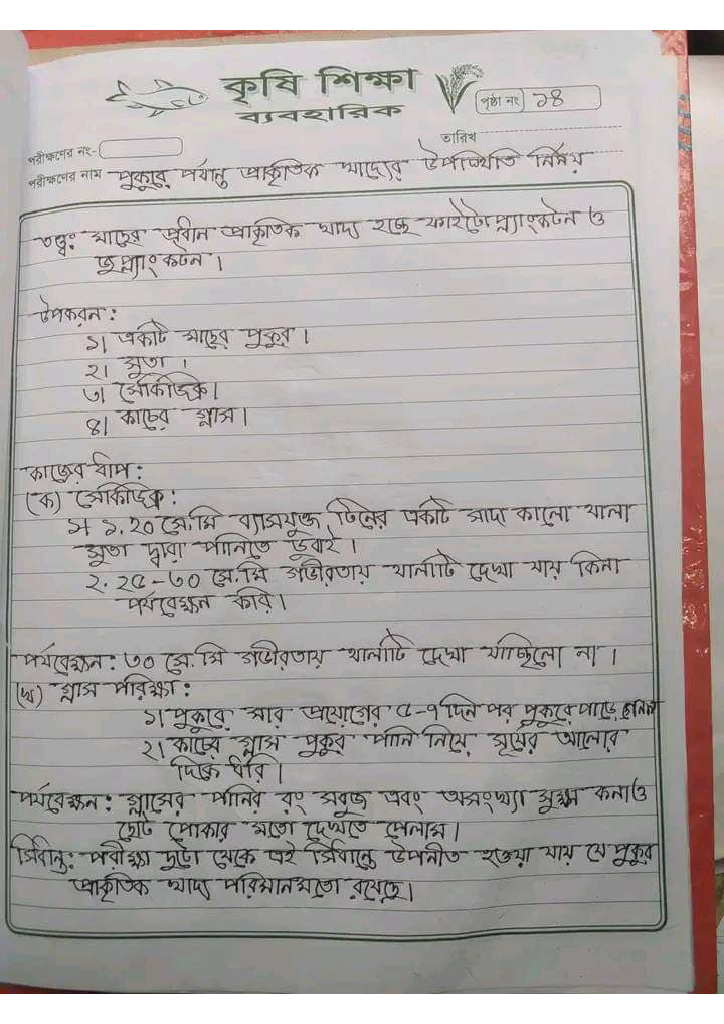 কৃষি শিক্ষা
ব্যবহারিক
পৃষ্ঠা নং ১৪
তারিখ
পরীক্ষণের নং-
পরীক্ষণের নাম পুকুরে পর্যাপ্ত প্রাকৃতিক খাদ্যের উপস্থিতি নির্নয়
তত্ত্ব: মাছের প্রধান প্রাকৃতিক খাদ্য হচ্ছে ফাইটোপ্ল্যাংকটন ও
জুপ্ল্যাংকটন।
উপকরন:
১। একটি মাছের পুকুর।
২। সুতা।
৩। সেকিডিস্ক।
৪। কাচের গ্লাস।
কাজের ধাপ:
(ক) সেকিডিস্ক:
১.২০ সে.মি ব্যাসযুক্ত টিনের একটি সাদা কালো থালা
সুতা দ্বারা পানিতে ডুবাই।
২. ২৫-৩০ সে.মি গভীরতায় থালাটি দেখা যায় কিনা
পর্যবেক্ষন করি।
পর্যবেক্ষন: ৩০ সে.মি গভীরতায় থালাটি দেখা যাচ্ছিলো না।
(খ) গ্লাস পরিক্ষা:
১। পুকুরে সার প্রয়োগের ৫-৭ দিন পর পুকুরে পাড়ে
২। কাচের গ্লাস পুকুর পানি নিয়ে সূর্যের আলোর
দিকে ধরি।
পর্যবেক্ষন: গ্লাসের পানির রং সবুজ এবং অসংখ্যা সুক্ষ্ম কনাও
ছোট পোকার মতো দেখতে পেলাম।
সিধান্ত: পরীক্ষা দুটো থেকে এই সিধান্তে উপনীত হওয়া যায় যে পুকুর
প্রাকৃতিক খাদ্য পরিমানমতো রয়েছে।